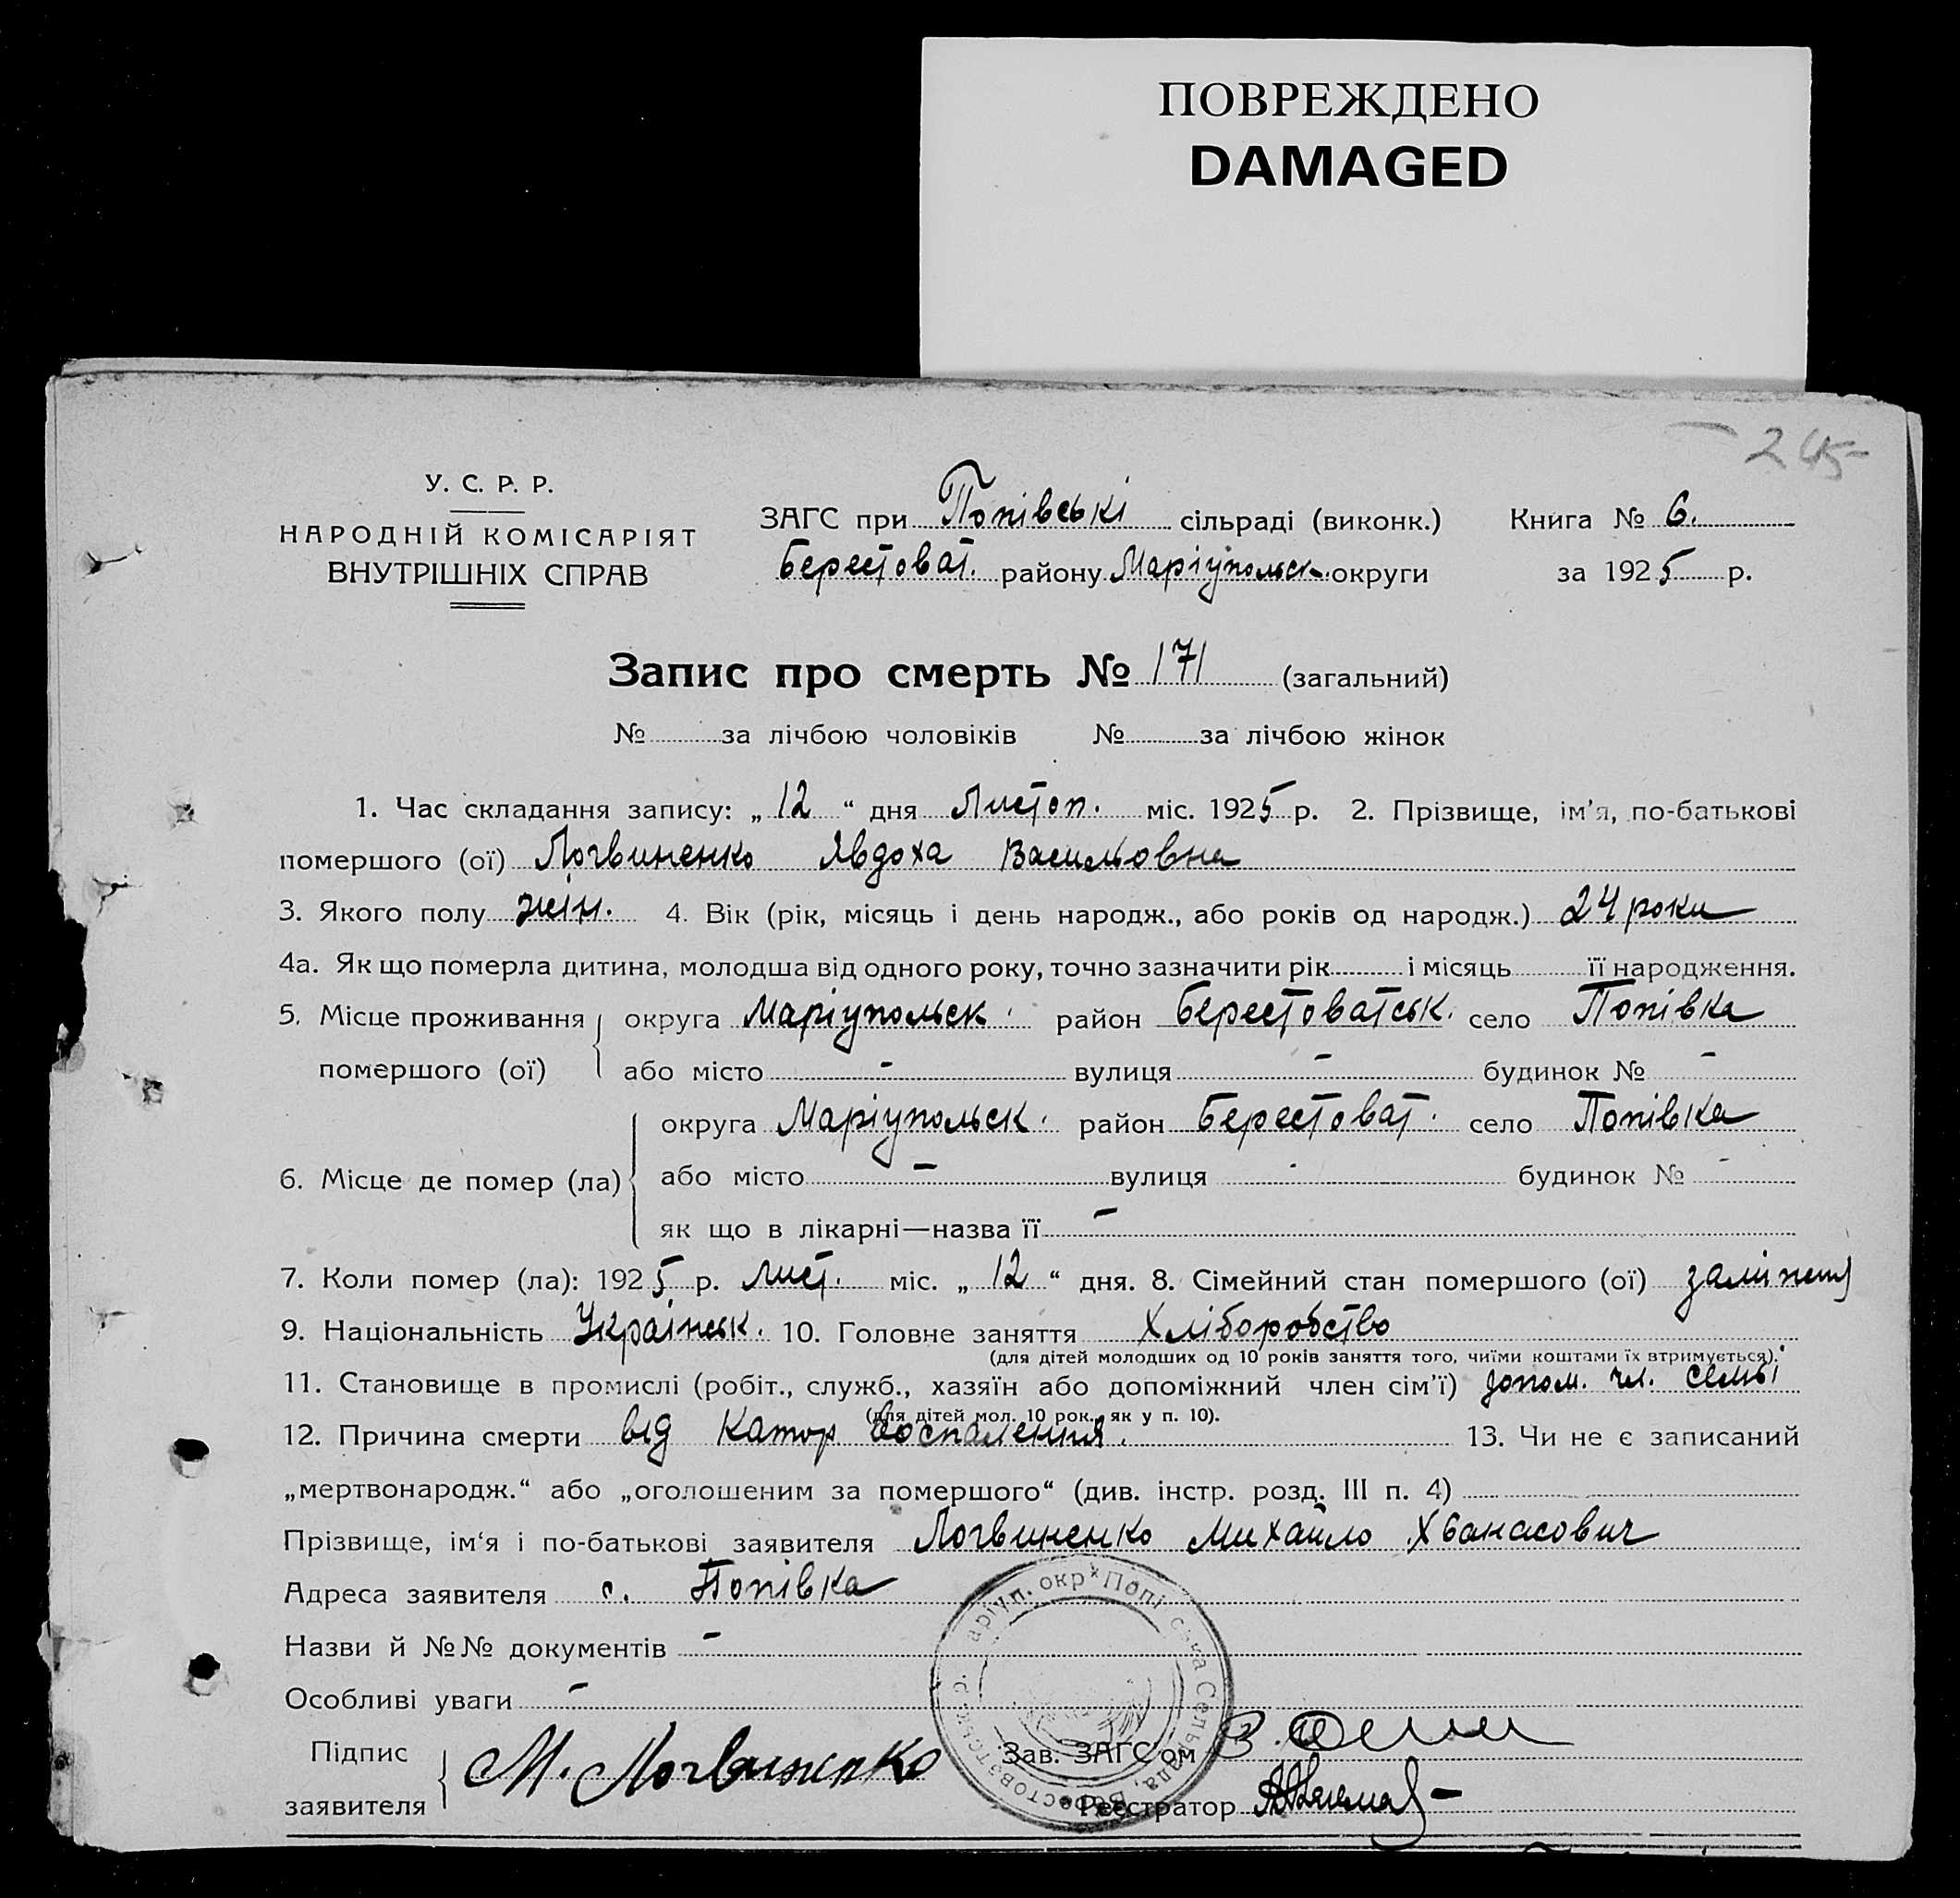 ПОВРЕЖДЕНО
DAMAGED
245
У. С. Р. Р.
НАРОДНІЙ КОМІСАРІЯТ
ВНУТРІШНІХ СПРАВ
ЗАГС при Попівські сільраді (виконк.) Книга № 6.
Берестоват. району Маріупольск. округи за 1925 р.
Запис про смерть № 171 (загальний)
№ за лічбою чоловіків № за лічбою жінок
1. Час складання запису: „ 12 “ дня Листоп. міс. 1925 р. 2. Прізвище, ім’я, по-батькові
помершого (ої) Логвиненко Явдоха Васильовна
3. Якого полу жін. 4. Вік (рік, місяць і день народж., або років од народж.) 24 роки
4а. Як що померла дитина, молодша від одного року, точно зазначити рік і місяць її народження.
5. Місце проживання округа Маріупольск. район Берестоватськ. село Попівка
помершого (ої) або місто - вулиця - будинок № -
округа Маріупольск. район Берестоват. село Попівка
6. Місце де помер (ла) або місто - вулиця - будинок № -
як що в лікарні—назва її -
7. Коли помер (ла): 1925 р. лист. міс. „ 12 “ дня. 8. Сімейний стан помершого (ої) заміжня
9. Національність Українськ. 10. Головне заняття Хліборобство
(для дітей молодших од 10 років заняття того, чиїми коштами їх втримується).
11. Становище в промислі (робіт., служб., хазяїн або допоміжний член сім’ї) допом. чл. семьі
(для дітей мол. 10 рок. як у п. 10).
12. Причина смерти від Катор воспалення. 13. Чи не є записаний
„мертвонародж.“ або „оголошеним за помершого“ (див. інстр. розд. III п. 4)
Прізвище, ім‘я і по-батькові заявителя Логвиненко Михайло Хванасович
Адреса заявителя с. Попівка
Назви й №№ документів -
Особливі уваги -
Підпис
заявителя М. Логвиненко
Зав. ЗАГС’ом
Реєстратор